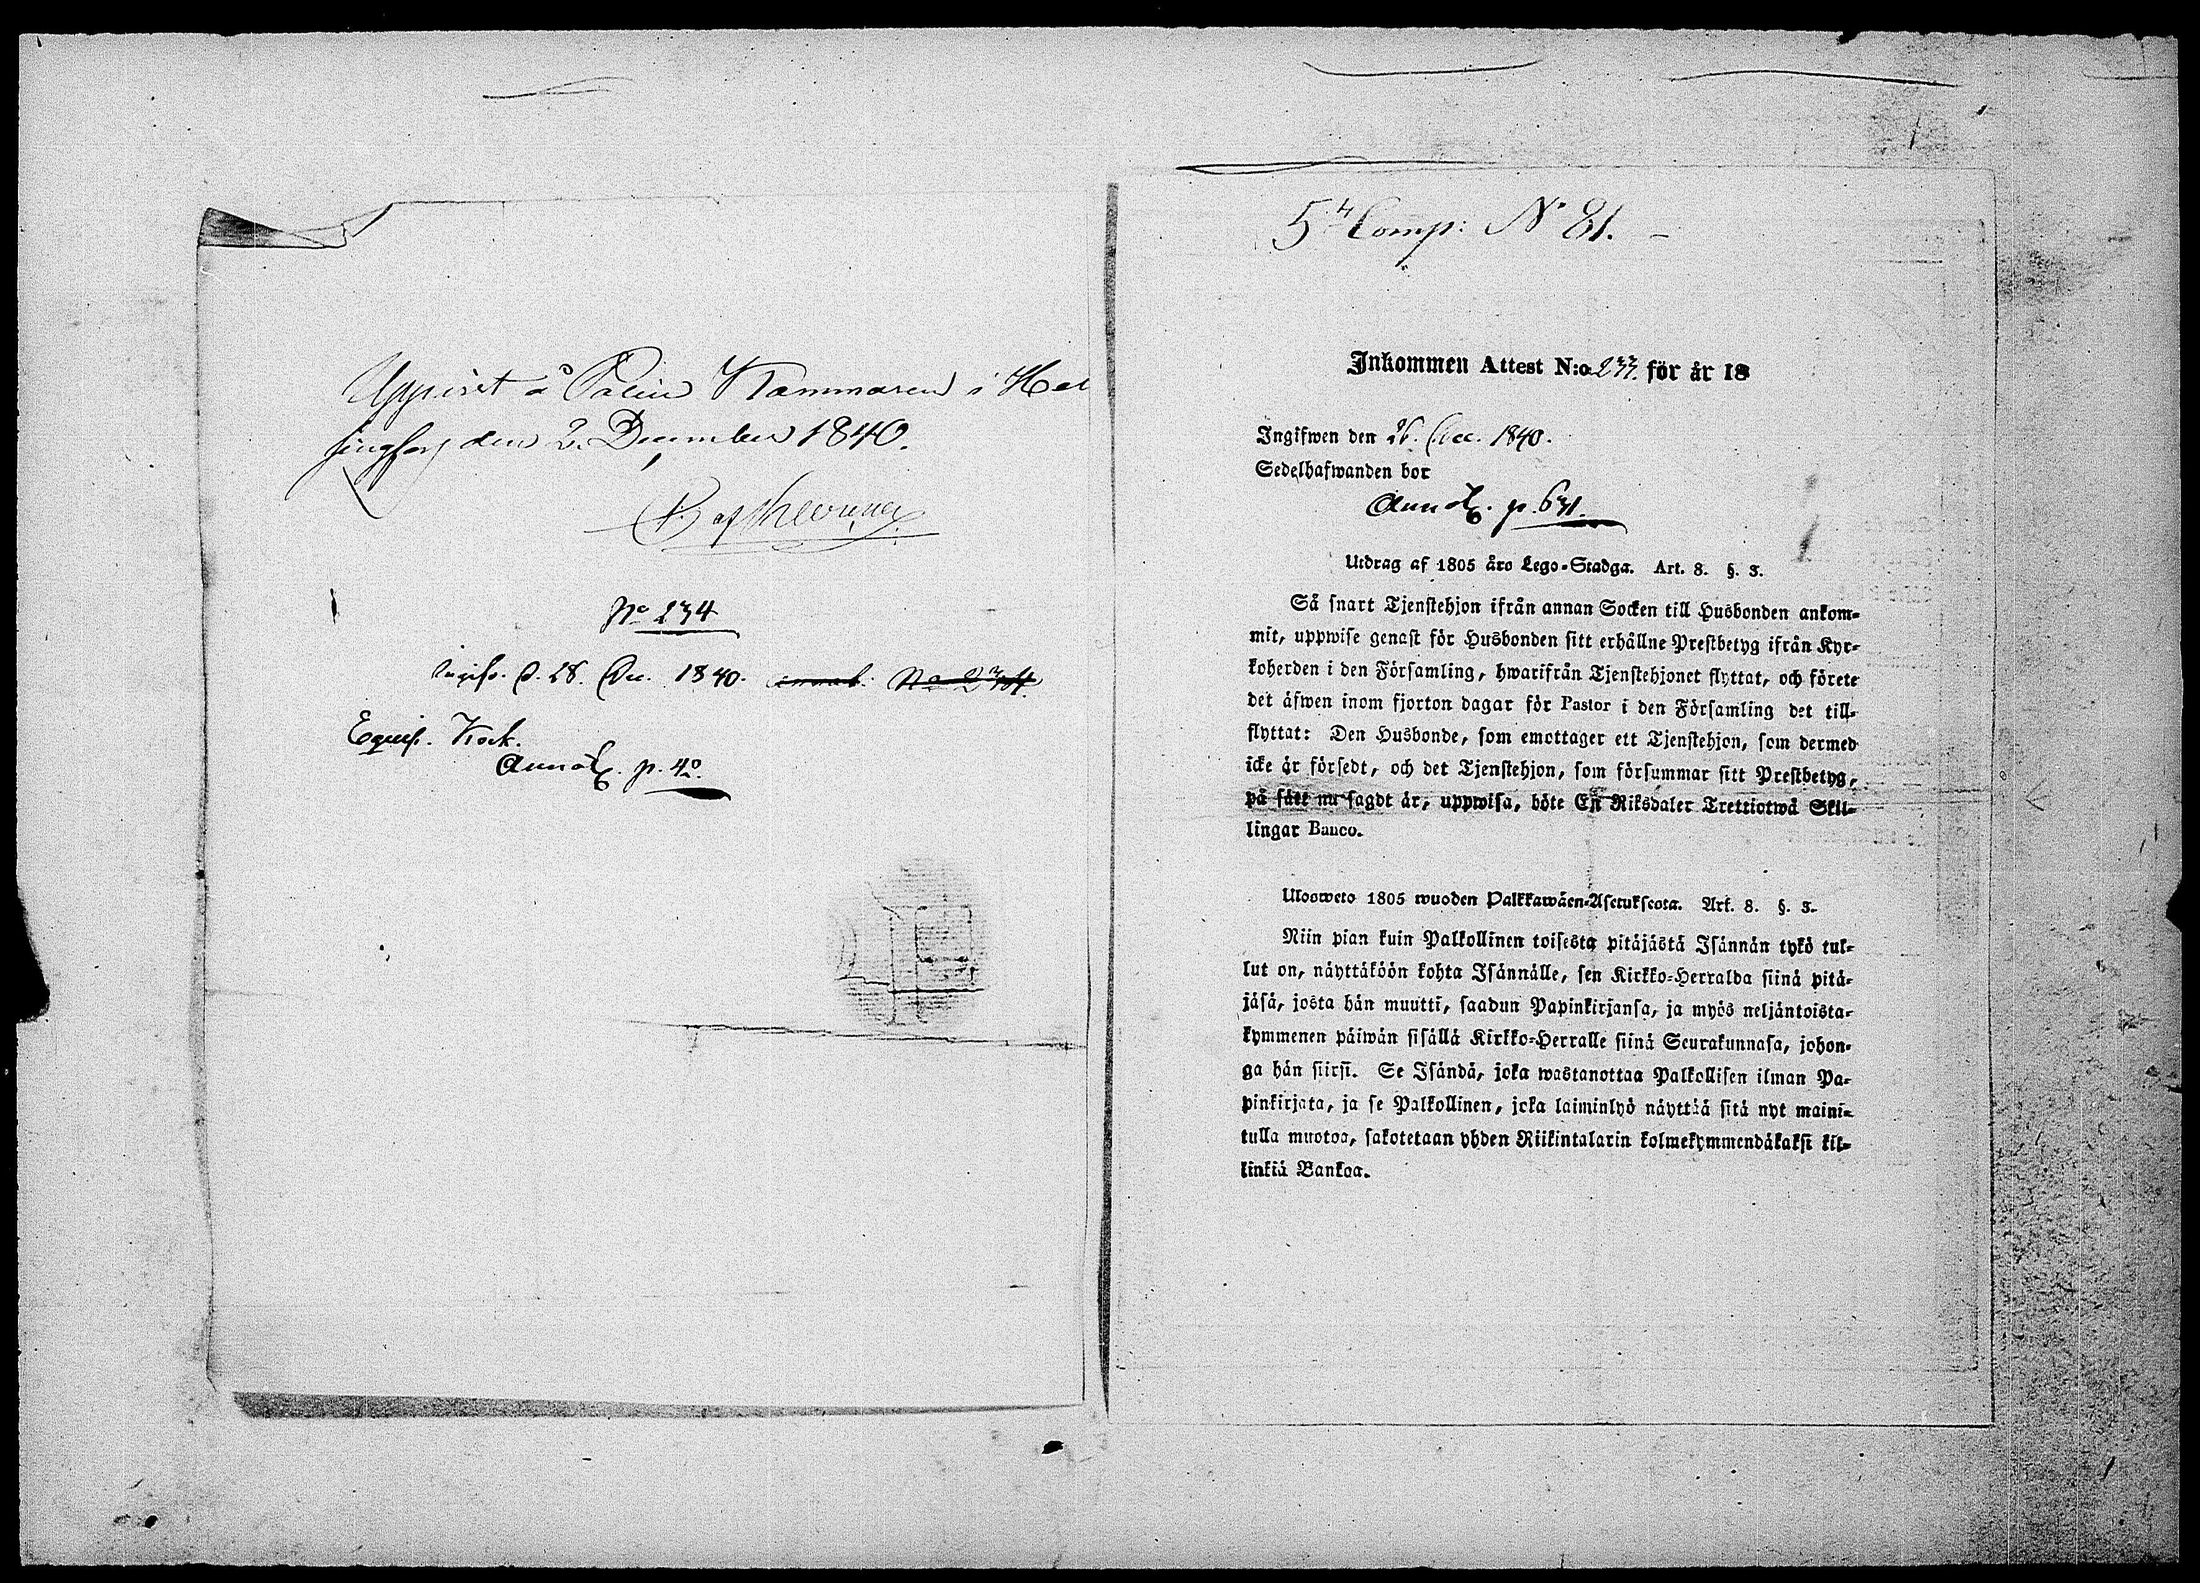 Uppvist å Polis Kammaren i Hel
singfors den 2. December 1840.
No 234
ingifv. d. 28. Dec. 1840. No 234.
Equip. Kock.
p. 42.
5te Comp: No 81.
Inkommen Attest N:o 233. för år 18
Ingifwen den 28. Dec. 1840.
Sedelhafwanden bor
p. 631.
Utdrag af 1805 års Lego-Stadga. Art. 8. §. 3.
Så snart Tjenstehjon ifrån annan Socken till Husbonden ankom-
mit, uppwise genast för Husbonden sitt erhållne Prestbetyg ifrån Kyr-
koherden i den Församling, hwarifrån Tjenstehjonet flyttat, och förete
det äfwen inom fjorton dagar för Pastor i den Församling det till-
flyttat: Den Husbonde, som emottager ett Tjenstehjon, som dermed
icke är försedt, och det Tjenstehjon, som försummar sitt Prestbetyg,
på sätt nu sagdt är, uppwisa, böte En Riksdaler Trettiotwå Skil-
lingar Banco.
Uloosweto 1805 wuoden Palkkawäen-Asetuksesta. Art. 8. §. 3.
Niin pian kuin Palkollinen toisesta pitäjästä Isännän tykö tul-
lut on, näyttäköön kohta Isännälle, sen Kirkko-Herralda siinä pitä-
jäsä, josta hän muutti, saadun Papinkirjansa, ja myös neljäntoista-
kymmenen päiwän sisällä Kirkko-Herralle siinä Seurakunnasa, johon-
ga hän siirsi. Se Isändä, joka wastanottaa Palkollisen ilman Pa-
pinkirjata, ja se Palkollinen, joka laiminlyö näyttää sitä nyt maini-
tulla muotoa, sakotetaan yhden Riikintalarin kolmekymmendäkaksi kil-
linkiä Bankoa.